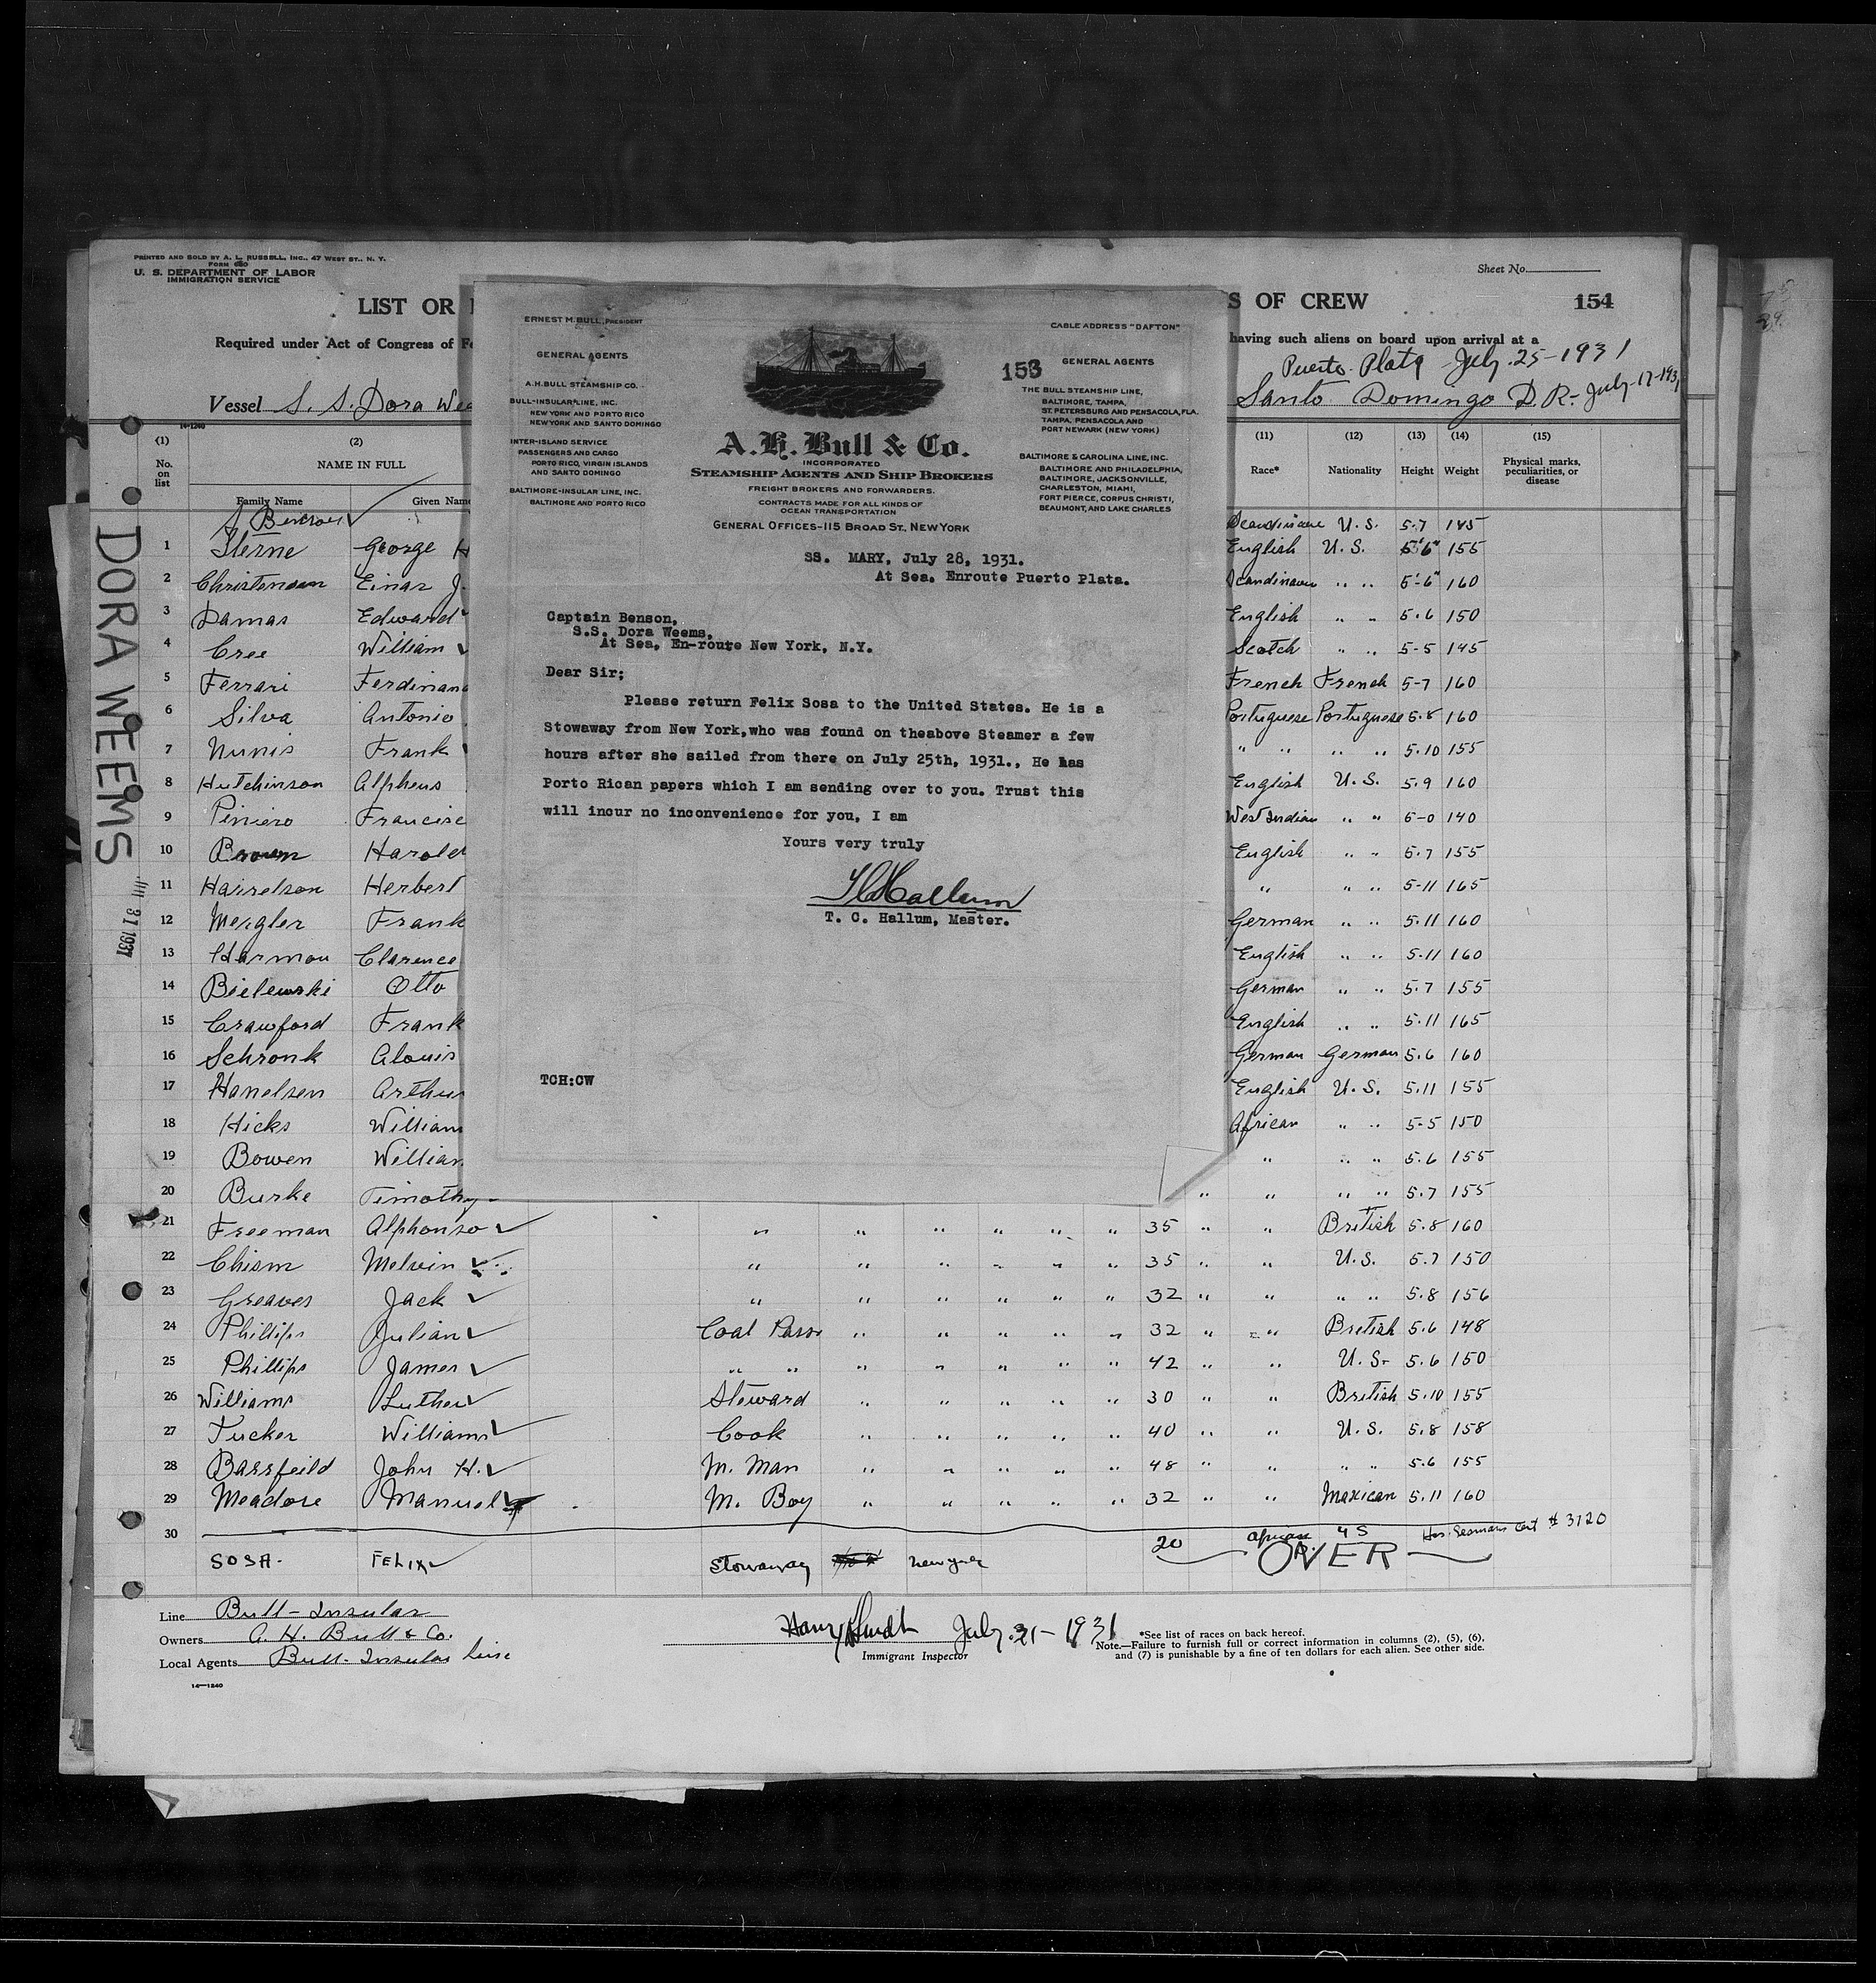 PRINTED AND SOLD BY A. L. RUSSELL, INC., 47 WEST ST., N. Y.
FORM 680
U. S. DEPARTMENT OF LABOR
IMMIGRATION SERVICE
Sheet No.
LIST OR
S OF CREW
154
Required under Act of Congress of Fe
having such aliens on board upon arrival at a
Puerto Plata July 25-1931
Vessel S. S. Dora Wee
Santo Domingo D. R. July-17-1931
14-1240
(1) (2) (11) (12) (13) (14) (15)
No. on list NAME IN FULL Race* Nationality Height Weight Physical marks, peculiarities, or disease
Family Name Given Name
Benson Scandinave U.S. 5.7 145
1 Sterne George H English U.S. 5'6" 155
2 Christensen Einar J. Scandinave " " 5'-6" 160
3 Damas Edward English " " 5.6 150
4 Cree William Scotch " " 5-5 145
5 Ferrari Ferdinand French French 5-7 160
6 Silva Antonio Portuguese Portuguese 5.8 160
7 Nunis Frank " " " " 5.10 155
8 Hutchinson Alpheus English U.S. 5.9 160
9 Piniero Francisc West Indian " " 6-0 140
10 Brown Harold English " " 5.7 155
11 Harrelson Herbert " " " 5-11 165
12 Mergler Frank German " " 5.11 160
13 Harmon Clarence English " " 5-11 160
14 Bielewski Otto German " " 5.7 155
15 Crawford Frank English " " 5.11 165
16 Schronk Alouis German German 5.6 160
17 Hanelsen Arthur English U.S. 5.11 155
18 Hicks William African " " 5-5 150
19 Bowen William " " " 5.6 155
20 Burke Timothy " " " " 5.7 155
21 Freeman Alphonso " " " " " " 35 " " British 5.8 160
22 Chism Melvin " " " " " " 35 " " U.S. 5.7 150
23 Greaves Jack " " " " " " 32 " " " " 5.8 156
24 Phillips Julian Coal Pass " " " " " 32 " " British 5.6 148
25 Phillips James " " " " " " " 42 " " U.S. 5.6 150
26 Williams Luther Steward " " " " " 30 " " British 5.10 155
27 Tucker Williams Cook " " " " " 40 " " U.S. 5.8 158
28 Barsfeild John H. M. Man " " " " " 48 " " " " 5.6 155
29 Meadose Manuel M. Boy " " " " " 32 " " Mexican 5.11 160
30
SOSA. FELIX Stowaway New York 20 African US Has Seamans Cert # 3120
OVER
Line Bull-Insular
Owners A. H. Bull & Co.
Local Agents Bull-Insular Line
14-1240
July 31-1931
Immigrant Inspector
*See list of races on back hereof.
Note.—Failure to furnish full or correct information in columns (2), (5), (6),
and (7) is punishable by a fine of ten dollars for each alien. See other side.
DORA WEEMS
31 1931
ERNEST M. BULL, PRESIDENT
CABLE ADDRESS "DAFTON"
153
GENERAL AGENTS
A.H. BULL STEAMSHIP CO.
BULL-INSULAR LINE, INC.
NEW YORK AND PORTO RICO
NEW YORK AND SANTO DOMINGO
INTER-ISLAND SERVICE
PASSENGERS AND CARGO
PORTO RICO, VIRGIN ISLANDS
AND SANTO DOMINGO
BALTIMORE-INSULAR LINE, INC.
BALTIMORE AND PORTO RICO
GENERAL AGENTS
THE BULL STEAMSHIP LINE,
BALTIMORE, TAMPA,
ST. PETERSBURG AND PENSACOLA, FLA.
TAMPA, PENSACOLA AND
PORT NEWARK (NEW YORK)
BALTIMORE & CAROLINA LINE, INC.
BALTIMORE AND PHILADELPHIA,
BALTIMORE, JACKSONVILLE,
CHARLESTON, MIAMI,
FORT PIERCE, CORPUS CHRISTI,
BEAUMONT, AND LAKE CHARLES
A. H. Bull & Co.
INCORPORATED
STEAMSHIP AGENTS AND SHIP BROKERS
FREIGHT BROKERS AND FORWARDERS.
CONTRACTS MADE FOR ALL KINDS OF
OCEAN TRANSPORTATION
GENERAL OFFICES-115 BROAD ST., NEW YORK
SS. MARY, July 28, 1931.
At Sea. Enroute Puerto Plata.
Captain Benson,
S.S. Dora Weems,
At Sea, En-route New York, N.Y.
Dear Sir;
Please return Felix Sosa to the United States. He is a
Stowaway from New York,who was found on theabove Steamer a few
hours after she sailed from there on July 25th, 1931., He has
Porto Rican papers which I am sending over to you. Trust this
will incur no inconvenience for you, I am
Yours very truly
T C Hallum
T. C. Hallum, Master.
TCH:CW